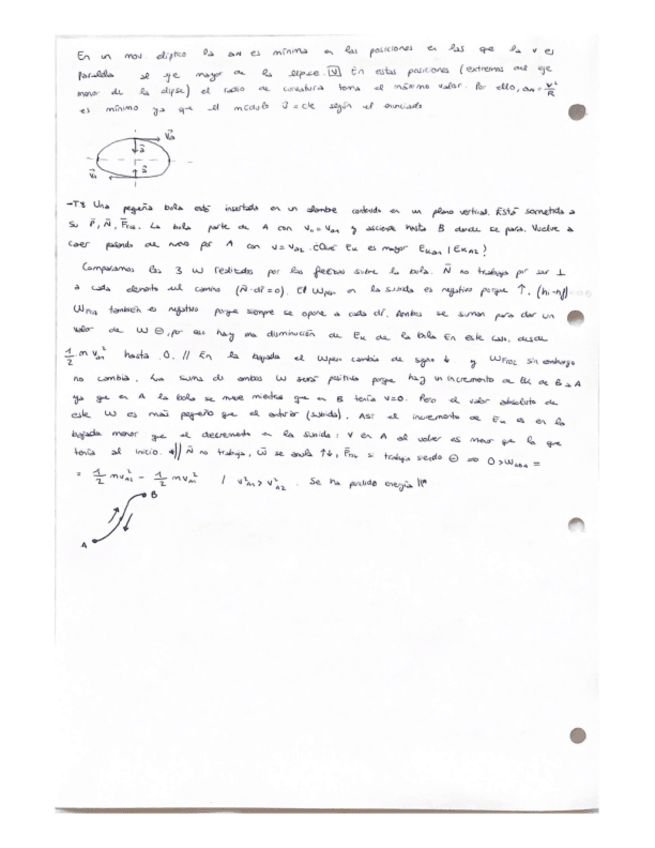 En un mov. elíptico la aN es mínima en las posiciones en las que la v es
paralela al eje mayor de la elipse. V En estas posiciones (extremos del eje
menor de la elipse) el radio de curvatura toma el máximo valor. Por ello, aN = v²/R
es mínimo ya que el módulo v̄ = cte según el enunciado
-T8 Una pequeña bola está insertada en un alambre contenido en un plano vertical. Está sometida a
su P̄, N̄, F̄roz. La bola parte de A con v₀ = vA1 y asciende hasta B donde se para. Vuelve a
caer pasando de nuevo por A con v = vA2. ¿Qué Ek es mayor EkA1 | EkA2?
Comparamos los 3 W realizados por las fuerzas sobre la bola. N̄ no trabaja por ser ⊥
a cada elemento del camino (N̄·dr̄=0). El Wpeso en la subida es negativo porque ↑. (hi-hf)
Wfroz también es negativo porque siempre se opone a cada dr̄. Ambos se suman para dar un
valor de W ⊖, por eso hay una disminución de Ek de la bola En este caso, desde
1/2 m vA1² hasta 0. // En la bajada el Wpeso cambia de signo ↓ y WFroz sin embargo
no cambia. La suma de ambos W será positiva porque hay un incremento de Ek de B a A
ya que en A la bola se mueve mientras que en B tenía v=0. Pero el valor absoluto de
este W es más pequeño que el anterior (subida). Así el incremento de Ek es en la
bajada menor que el decremento en la subida; v en A al volver es menor que la que
tenía al inicio. // N̄ no trabaja, W̄ se anula ↑↓, Froz si trabaja siendo ⊖ ⇒ 0 > WABA =
= 1/2 m vA2² - 1/2 m vA1² / v²A1 > v²A2. Se ha perdido energía
B
A